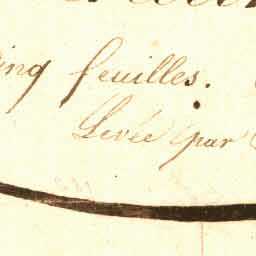 inq feuilles.
Levée par